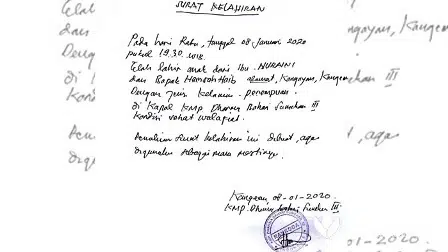 SURAT KELAHIRAN
Pada hari Rabu, tanggal 08 Januari 2020
pukul 19.30 WIB
Telah lahir anak dari Ibu NURAINI
dan Bapak alamat, Kangayan, Kangean
Dengan jenis kelamin perempuan
di Kapal KMP Dharma Bahari Sumekar III
Kondisi sehat walafiat
Demikian surat kelahiran ini dibuat, agar
digunakan sebagaimana mestinya.
Kangean, 08-01-2020
KMP. Dharma Bahari Sumekar III